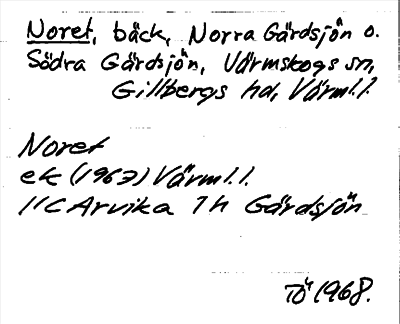 Noret, bäck, Norra Gärdsjön o.
Södra Gärdsjön, Värmskogs sn,
Gillbergs hd, Värml.l.
Noret
ek (1967) Värml.l.
11C Arvika 7h Gärdsjön
TÖ 1968.